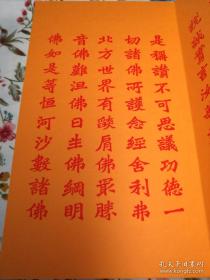 是稱讚不可思議功德一
切諸佛所護念經舍利弗
北方世界有燄肩佛最勝
音佛難沮佛日生佛網明
佛如是等恒河沙數諸佛